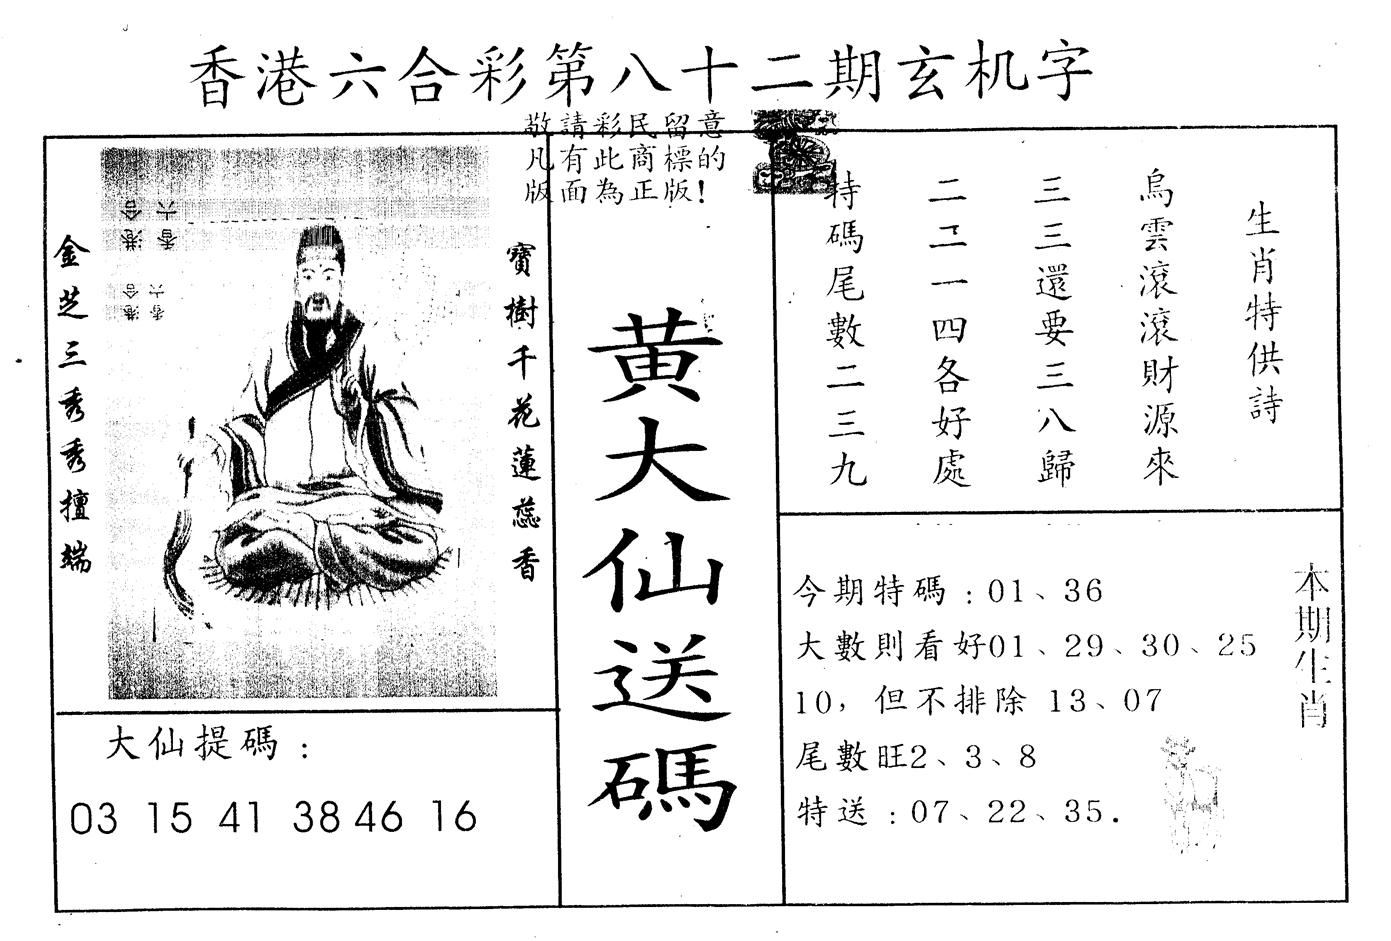 香港六合彩第八十二期玄机字
敬請彩民留意
凡有此商標的
版面為正版!
金芝三秀秀擅端
寶樹千花蓮蕊香
香港
六合
香港
六合
黄大仙送碼
生肖特供詩
烏雲滾滾財源來
三三還要三八歸
二二一四各好處
特碼尾數二三九
大仙提碼:
03 15 41 38 46 16
今期特碼:01、36
大數則看好01、29、30、25
10,但不排除 13、07
尾數旺2、3、8
特送:07、22、35.
本期生肖